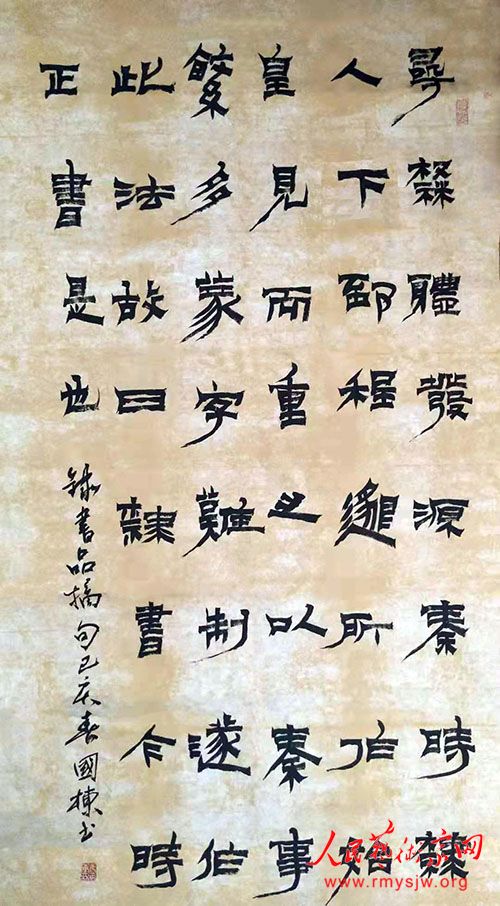 尋隸體發源秦時隸
人下邳程邈所作始
皇見而重之以奏事
繁多篆字難制遂作
此法故曰隸書今時
正書是也
錄書品摘句己亥春國棟書
人民藝術家网
www.rmysjw.org